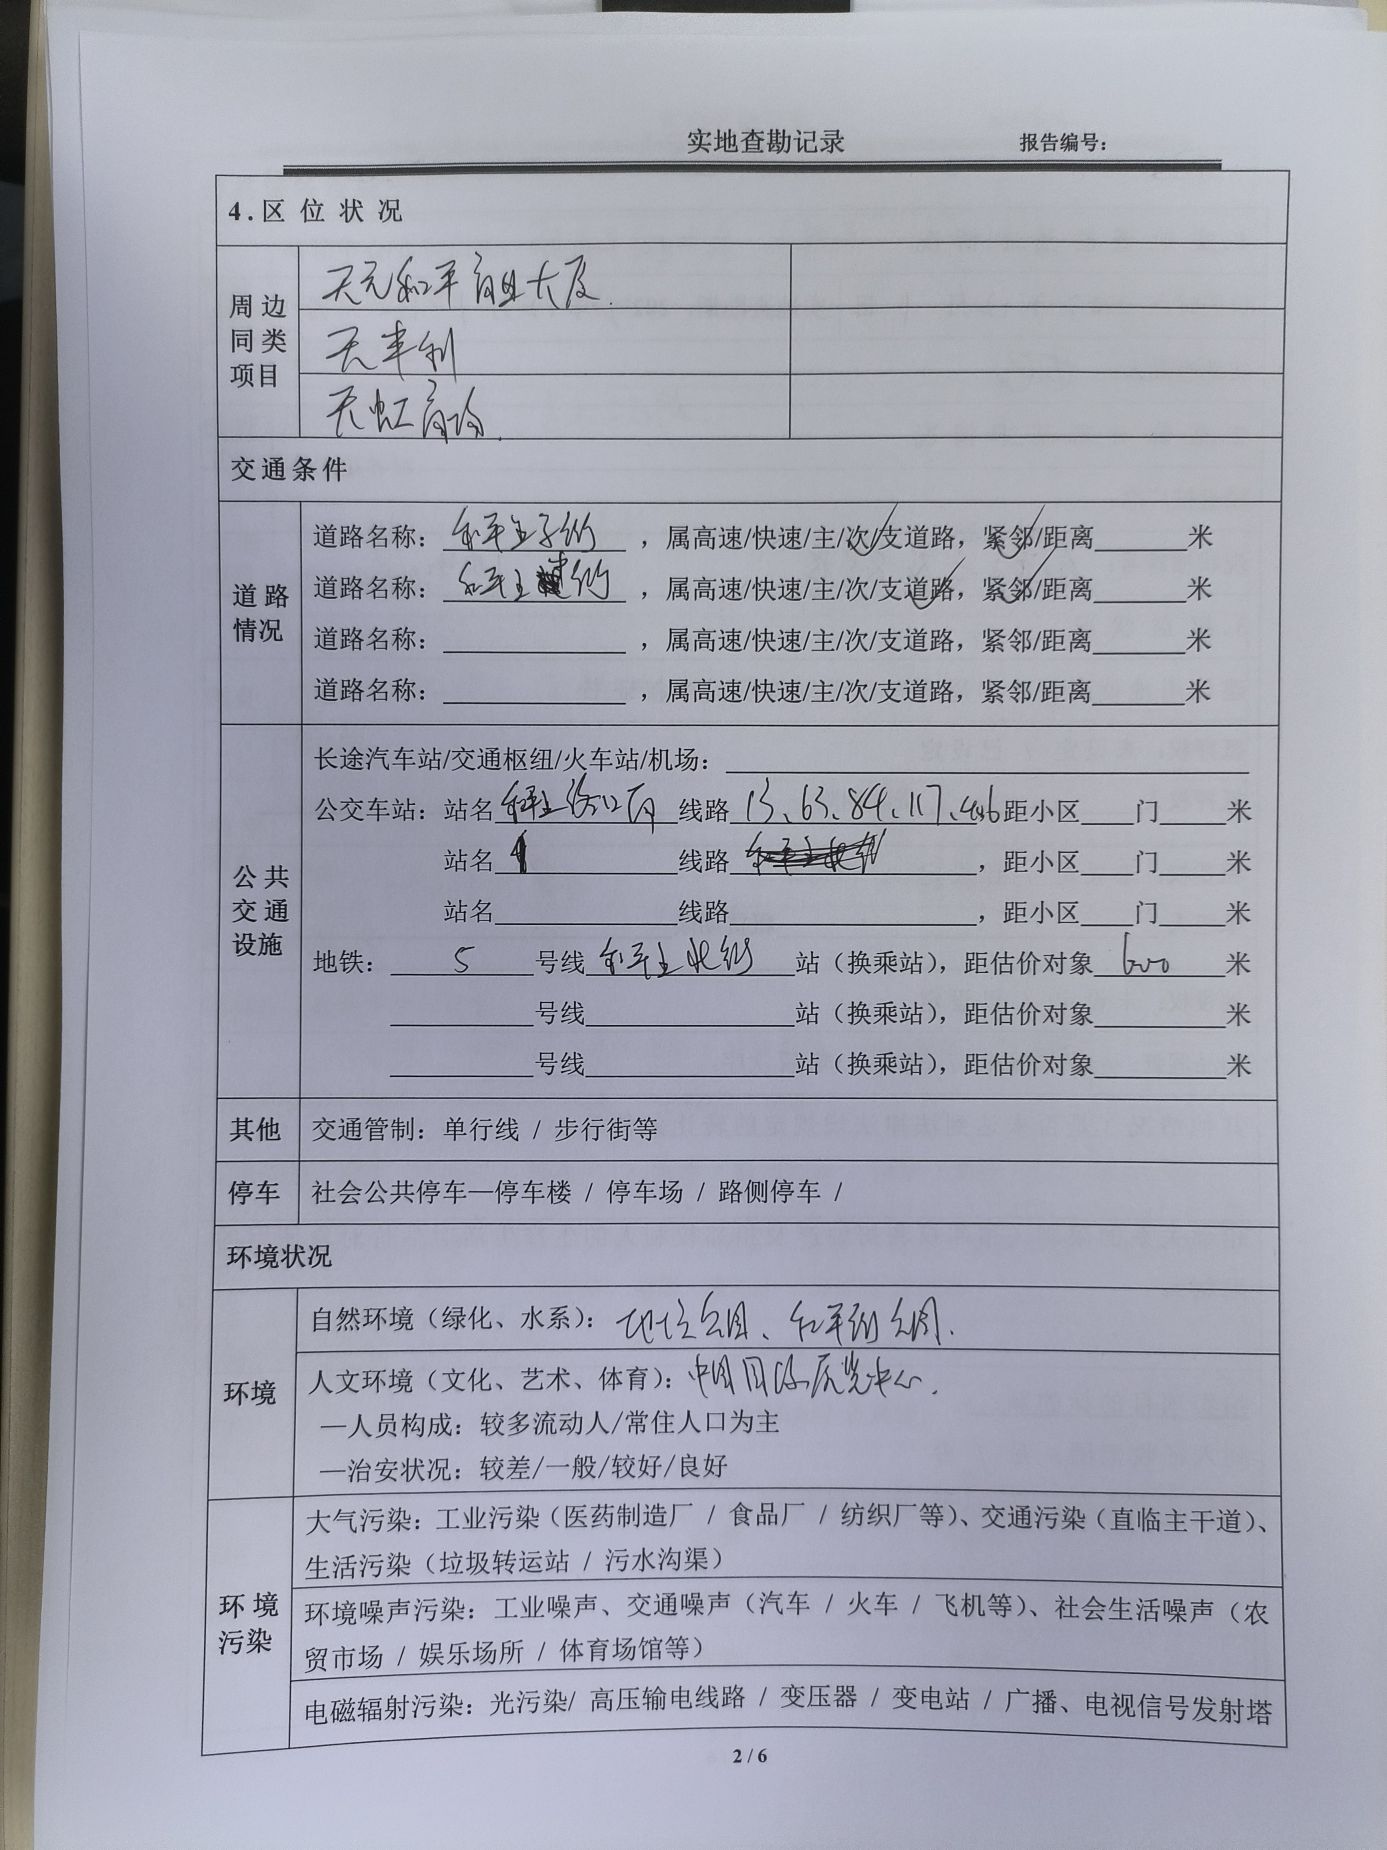 实地查勘记录 报告编号：
4.区位状况
周边同类项目
天元和平商业大厦
天丰利
天虹商场
交通条件
道路情况
道路名称：和平 街，属高速/快速/主/次/支道路，紧邻/距离 米
道路名称：和平 街，属高速/快速/主/次/支道路，紧邻/距离 米
道路名称： ，属高速/快速/主/次/支道路，紧邻/距离 米
道路名称： ，属高速/快速/主/次/支道路，紧邻/距离 米
公共交通设施
长途汽车站/交通枢纽/火车站/机场：
公交车站：站名 线路 13、63、84、117、 距小区 门 米
站名 线路 ，距小区 门 米
站名 线路 ，距小区 门 米
地铁：5号线和平 北街站（换乘站），距估价对象600米
号线 站（换乘站），距估价对象 米
号线 站（换乘站），距估价对象 米
其他 交通管制：单行线 / 步行街等
停车 社会公共停车—停车楼 / 停车场 / 路侧停车 /
环境状况
环境
自然环境（绿化、水系）：地坛公园、和平 公园.
人文环境（文化、艺术、体育）：中国国际展览中心.
—人员构成：较多流动人/常住人口为主
—治安状况：较差/一般/较好/良好
环境污染
大气污染：工业污染（医药制造厂 / 食品厂 / 纺织厂等）、交通污染（直临主干道）、
生活污染（垃圾转运站 / 污水沟渠）
环境噪声污染：工业噪声、交通噪声（汽车 / 火车 / 飞机等）、社会生活噪声（农
贸市场 / 娱乐场所 / 体育场馆等）
电磁辐射污染：光污染/ 高压输电线路 / 变压器 / 变电站 / 广播、电视信号发射塔
2 / 6